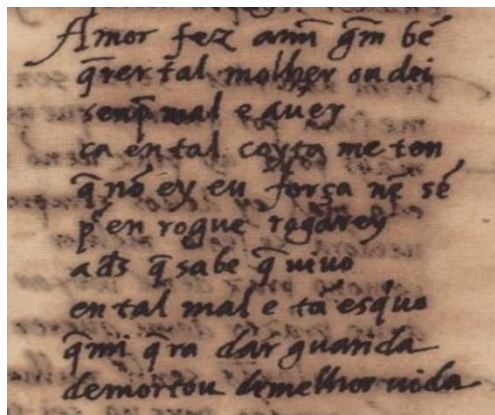 Amor fez amĩ q̃m bẽ
q̃rer tal molher ondei
senp̃ mal e auer
ca en tal coyta me ten
q̃ nõ ey eu força nẽ sẽ
p̃ en rogue rogarey
ads̃ q̃ sabe q̃ uiuo
en tal mal e tã esq̃uo
q̃mi q̃ra dar guarida
demortou demelhor uida